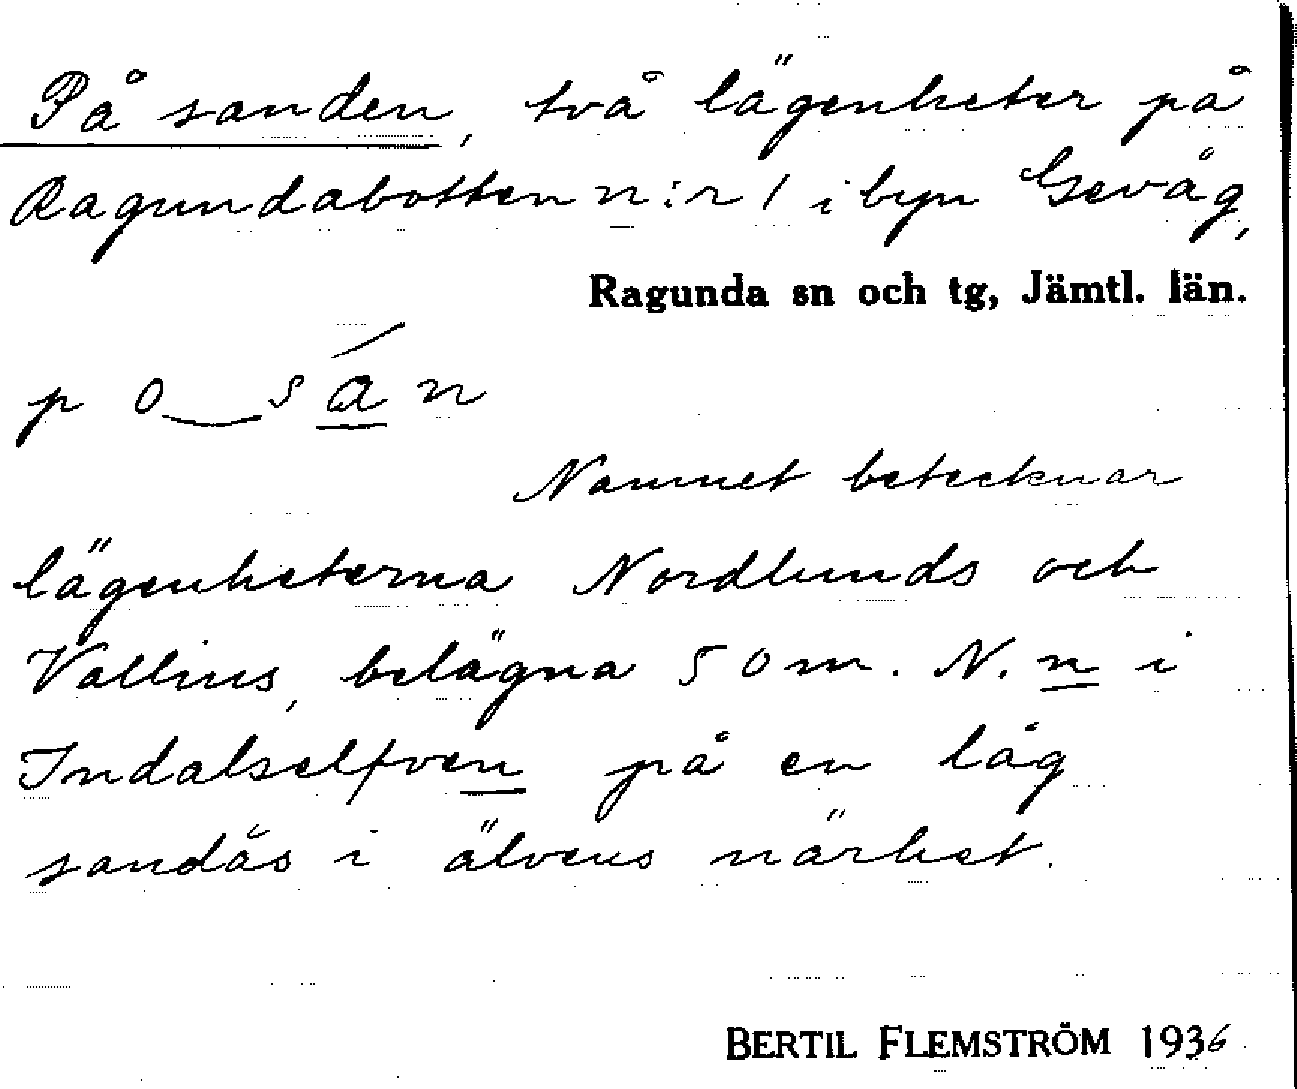 På sanden, två lägenheter på
Ragundabotten n:r 1 i byn Gevåg,
Ragunda sn och tg, Jämtl. län.
p o‿s á n
Namnet betecknar
lägenheterna Nordlunds och
Vallius, belägna 50 m. N. n i
Indalselfven på en låg
sandås i älvens närhet.
BERTIL FLEMSTRÖM 1936